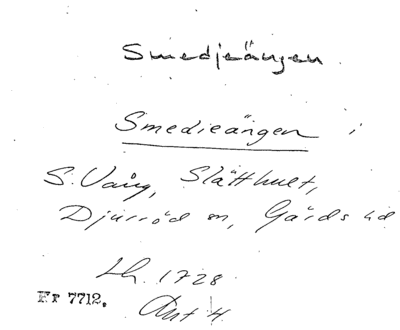 Smedjeängen
Smedieängen i
S. Vång, Slätthult,
Djurröd sn, Gärds hd
Lh. 1728
Fr 7712. Ant 4